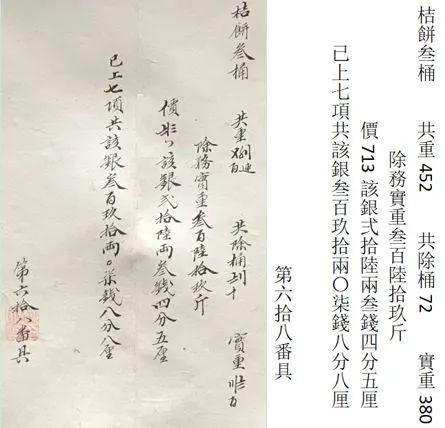 桔餅叁桶 共重 452 共除桶 72 實重 380
除務實重叁百陸拾玖斤
價 713 該銀弍拾陸兩叁錢四分五厘
已上七項共該銀叁百玖拾兩〇柒錢八分八厘
第六拾八番具
桔餅叁桶 共重 共除桶 實重
除務實重叁百陸拾玖斤
價 該銀弍拾陸兩叁錢四分五厘
已上七項共該銀叁百玖拾兩〇柒錢八分八厘
第六拾八番具